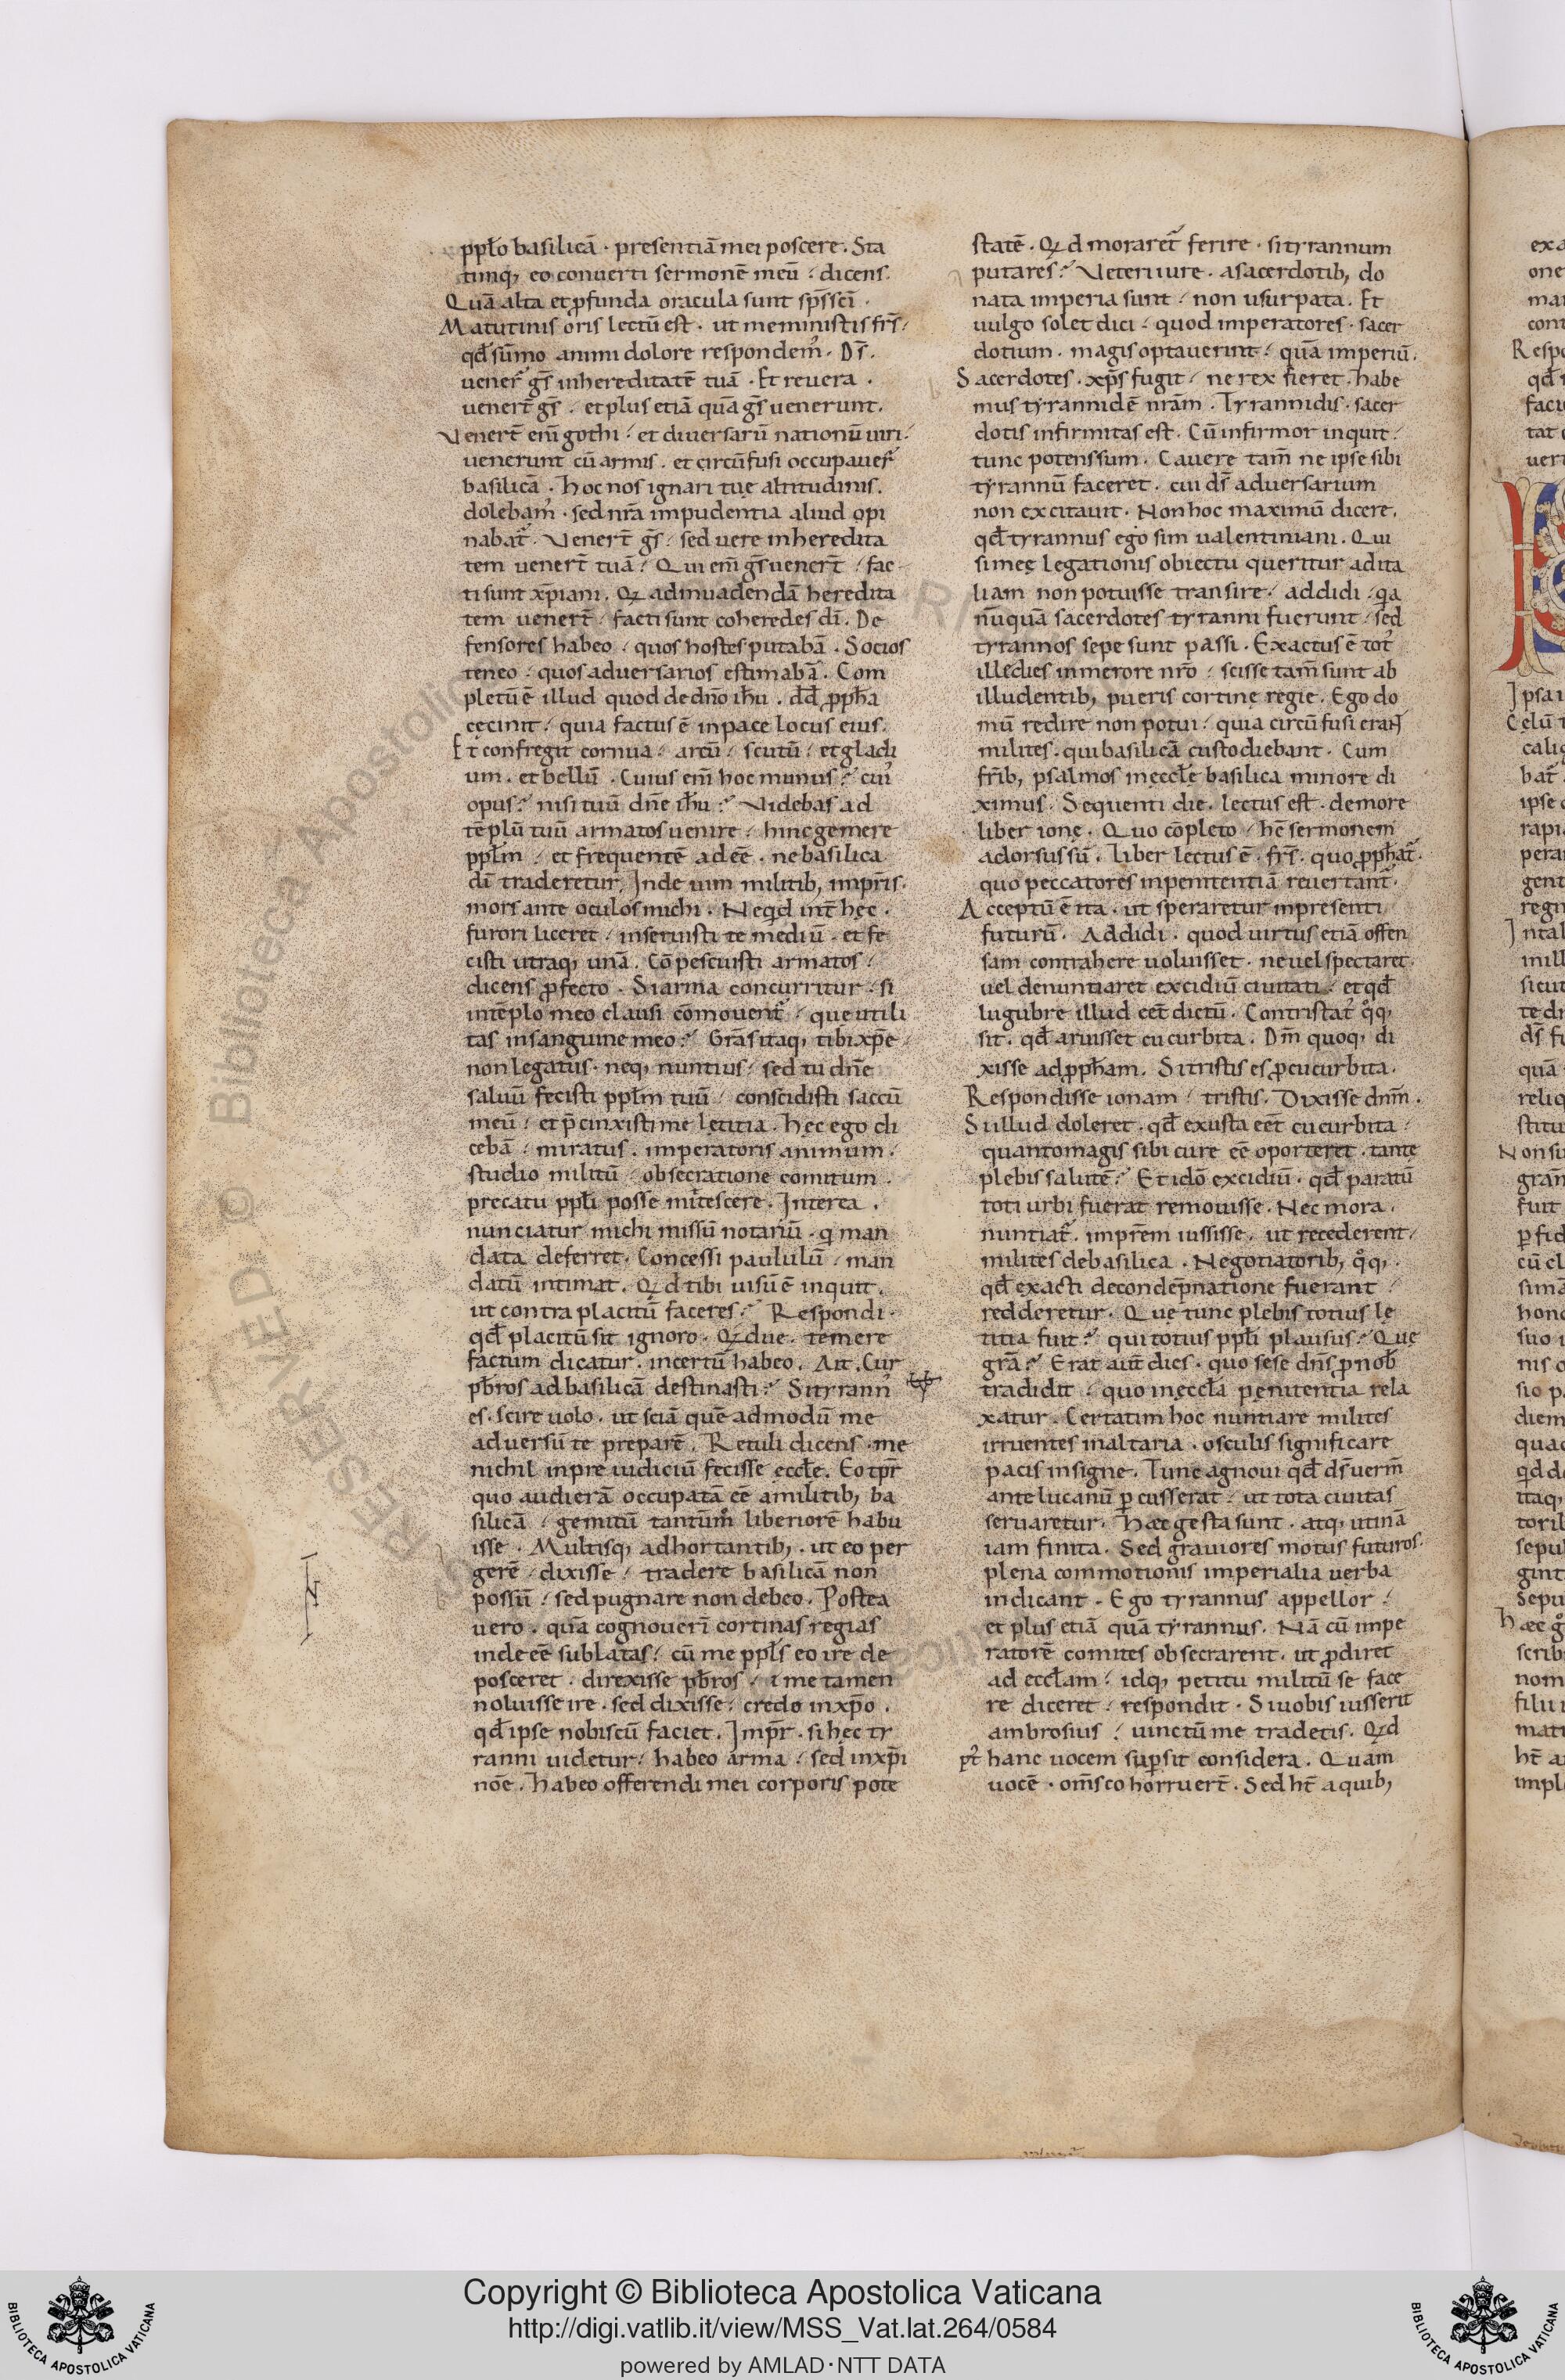 ppło basilicā · presentiā mei poscere. Sta
timq; eo conuerti sermonē meū · dicens.
Quā alta et ꝓfunda oracula sunt sp̄s sc̄i ·
Matutinis oris lectū est · ut meministis fr̄s ·
qđ sūmo animi dolore respondem᷒ · Ds̄.
uener̄ gs̄ in hereditatē tuā · Et reuera ·
uener̄t gs̄ · et plus etiā quā gs̄ uenerunt.
Venert̄ eni̅ gothi · et diuersarū nationū uiri ·
uenerunt cū armis · et circūfusi occupauer̄
basilicā · Hoc nos ignari tuę altitudinis.
dolebam᷒ · sed nr̄a impudentia aliud opi
nabat᷑ · Venert̄ gs̄ · sed uere in heredita
tem uenert̄ tuā · Qui eni̅ gs̄ uenert̄ · fac
ti sunt xp̄iani. Qꝫ ad inuadendā heredita
tem uenert̄ · facti sunt coheredes dī. De
fensores habeo · quos hostes putabā · Socios
teneo · quos aduersarios estimabā. Com
pletū ē illud quod de dn̄o ihū · dd̄ ꝓpħa
cęcinit · quia factus ē in pace locus eius.
Et confregit cornua · arcū · scutū · et gladi
um · et bellū · Cuius eni̅ hoc munus? cui᷒
opus? nisi tuū dn̄e ihū? Videbas ad
tēplū tuū armatos uenire · hinc gemere
ppłm · et frequentē adeē · ne basilica
dī traderetur. Inde uim militib; impr̄is ·
mors ante oculos michi · Ne qd̓ int̄ hęc ·
furori liceret · inseruisti te mediū · et fe
cisti utraq; unā. Cōpescuisti armatos ·
dicens ꝓfecto · Si arma concurritur · si
in tēplo meo clausi cōmouent᷑ · que utili
tas in sanguine meo? Grās itaq; tibi xp̄e ·
non legatus · neq; nuntius · sed tu dn̄e
saluū fecisti ppłm tuū · conscidisti saccū
meū · et p̄cinxisti me lętitia · hęc ego di
cebā · miratus · imperatoris animum ·
studio militū · obsecratione comitum ·
precatu ppłi posse mitescere. Interea ·
nunciatur michi missū notariū · q̓ man
data deferret · Concessi paululū · man
datū intimat. Qꝫd tibi uisū ē inquit ·
ut contra placitū faceres? Respondi ·
qđ placitū sit ignoro · Qꝫ due · temere
factum dicatur · incertū habeo. Ait. Cur
pb̄ros ad basilicā destinasti? Si tyrann᷒
es · scire uolo · ut sciā quē admodū me
aduersū te preparē. Retuli dicens · me
nichil in pre iudiciū fecisse eccłę. Eo tp̄r
quo audierā occupatā eē a militib; ba
silicā · gemitū tantūm᷒ liberiorē habu
isse · Multisq; adhortantib; · ut eo per
gerē · dixisse · tradere basilicā non
possū · sed pugnare non debeo. Postea
uero · quā cognouerī cortinas regias
inde eē sublatas · cū me ppłs eo ire de
posceret · direxisse pb̄ros · i me tamen
noluisse ire · sed dixisse · credo in xp̄o ·
qđ ipse nobiscū faciet. Impr̄ · si hęc ty
ranni uidetur · habeo arma · sed in xp̄i
nōe. Habeo offerendi mei corporis pote
statē · Qꝫd moraret᷑ ferire · si tyrannum
putares? Veteri iure · a sacerdotib; do
nata imperia sunt · non usurpata. Et
uulgo solet dici · quod imperatores · sacer
dotium · magis optauerint · quā imperiū.
Sacerdotes · xp̄s fugit · ne rex fieret. habe
mus tyrannidē nrām · Tyrannidis · sacer
dotis infirmitas est. Cū infirmor inquit ·
tunc potens sum. Cauere tam̄ ne ipse sibi
tyrannū faceret · cui ds̄ aduersarium
non excitauit · Non hoc maximū dicere.
qđ tyrannus ego sim ualentiniani. Qui
si meę legationis obiectu queritur ad ita
liam non potuisse transire · addidi · qa
nūquā sacerdotes tyranni fuerunt · sed
tyrannos sepe sunt passi · Exactus ē tot᷒
ille dies in merore nr̄o · scisse tam̄ sunt ab
illudentib; pueris cortinę regie. Ego do
mū redire non potui · quia circūfusi eran̄
milites · qui basilicā custodiebant · Cum
fr̄ib; psalmos in ęccłę basilica minore di
ximus. Sequenti die · lectus est · de more
liber ionę · Quo cōpleto · hc̄ sermonem
adorsus sū. Liber lectus ē · fr̄s · quo ꝓpħat᷑ ·
quo peccatores in penitentiā reuertant᷑ ·
Acceptū ē ita · ut speraretur in presenti
futurū · Addidi · quod uirtus etiā offen
sam contrahere uoluisset · ne uel spectaret ·
uel denuntiaret excidiū ciuitati · et qđ
lugubre illud eēt dictū · Contristat᷒ q̊q;
sit · qđ aruisset cucurbita. Dm̄ quoq; di
xisse ad ꝓpħam. Si tristis es ꝓ cucurbita.
Respondisse ionam · tristis. Dixisse dnm̄.
Si illud doleret · qđ exusta eēt cucurbita ·
quanto magis sibi cure eē oporteret · tantę
plebis salutē? Et idō excidiū · qđ paratū
toti urbi fuerat remouisse · Nec mora ·
nuntiat᷑ · impr̄em iussisse · ut recederent ·
milites de basilica · Negotiatorib; q̊q; ·
qđ exacti de condēpnatione fuerant ·
redderetur · Quę tunc plebis totius lę
titia fuit? qui totius ppłi plausus? Quę
grā? Erat aut̄ dies · quo sese dn̄s ꝓ nob̄
tradidit · quo in ęccła pęnitentia rela
xatur. Certatim hoc nuntiare milites
irruentes in altaria · osculis significare
pacis insigne. Tunc agnoui qđ ds̄ uerm̄
ante lucanū ꝑcusserat · ut tota ciuitas
seruaretur · Hæc gesta sunt · atq; utinā
iam finita. Sed grauiores motus futuros ·
plena commotionis imperialia uerba
indicant · Ego tyrannus appellor ·
et plus etiā quā tyrannus. Nā cū impe
ratorē comites obsecrarent · ut ꝓdiret
ad eccłam · idq; petitu militū se face
re diceret · respondit · Si uobis iusserit
ambrosius · uinctū me tradetis. Qꝫd
hanc uocem suꝑsit considera. Quam
uocē · om̄s cohorruert̄ · Sed ht̄ a quib;
Copyright © Biblioteca Apostolica Vaticana
http://digi.vatlib.it/view/MSS_Vat.lat.264/0584
powered by AMLAD·NTT DATA